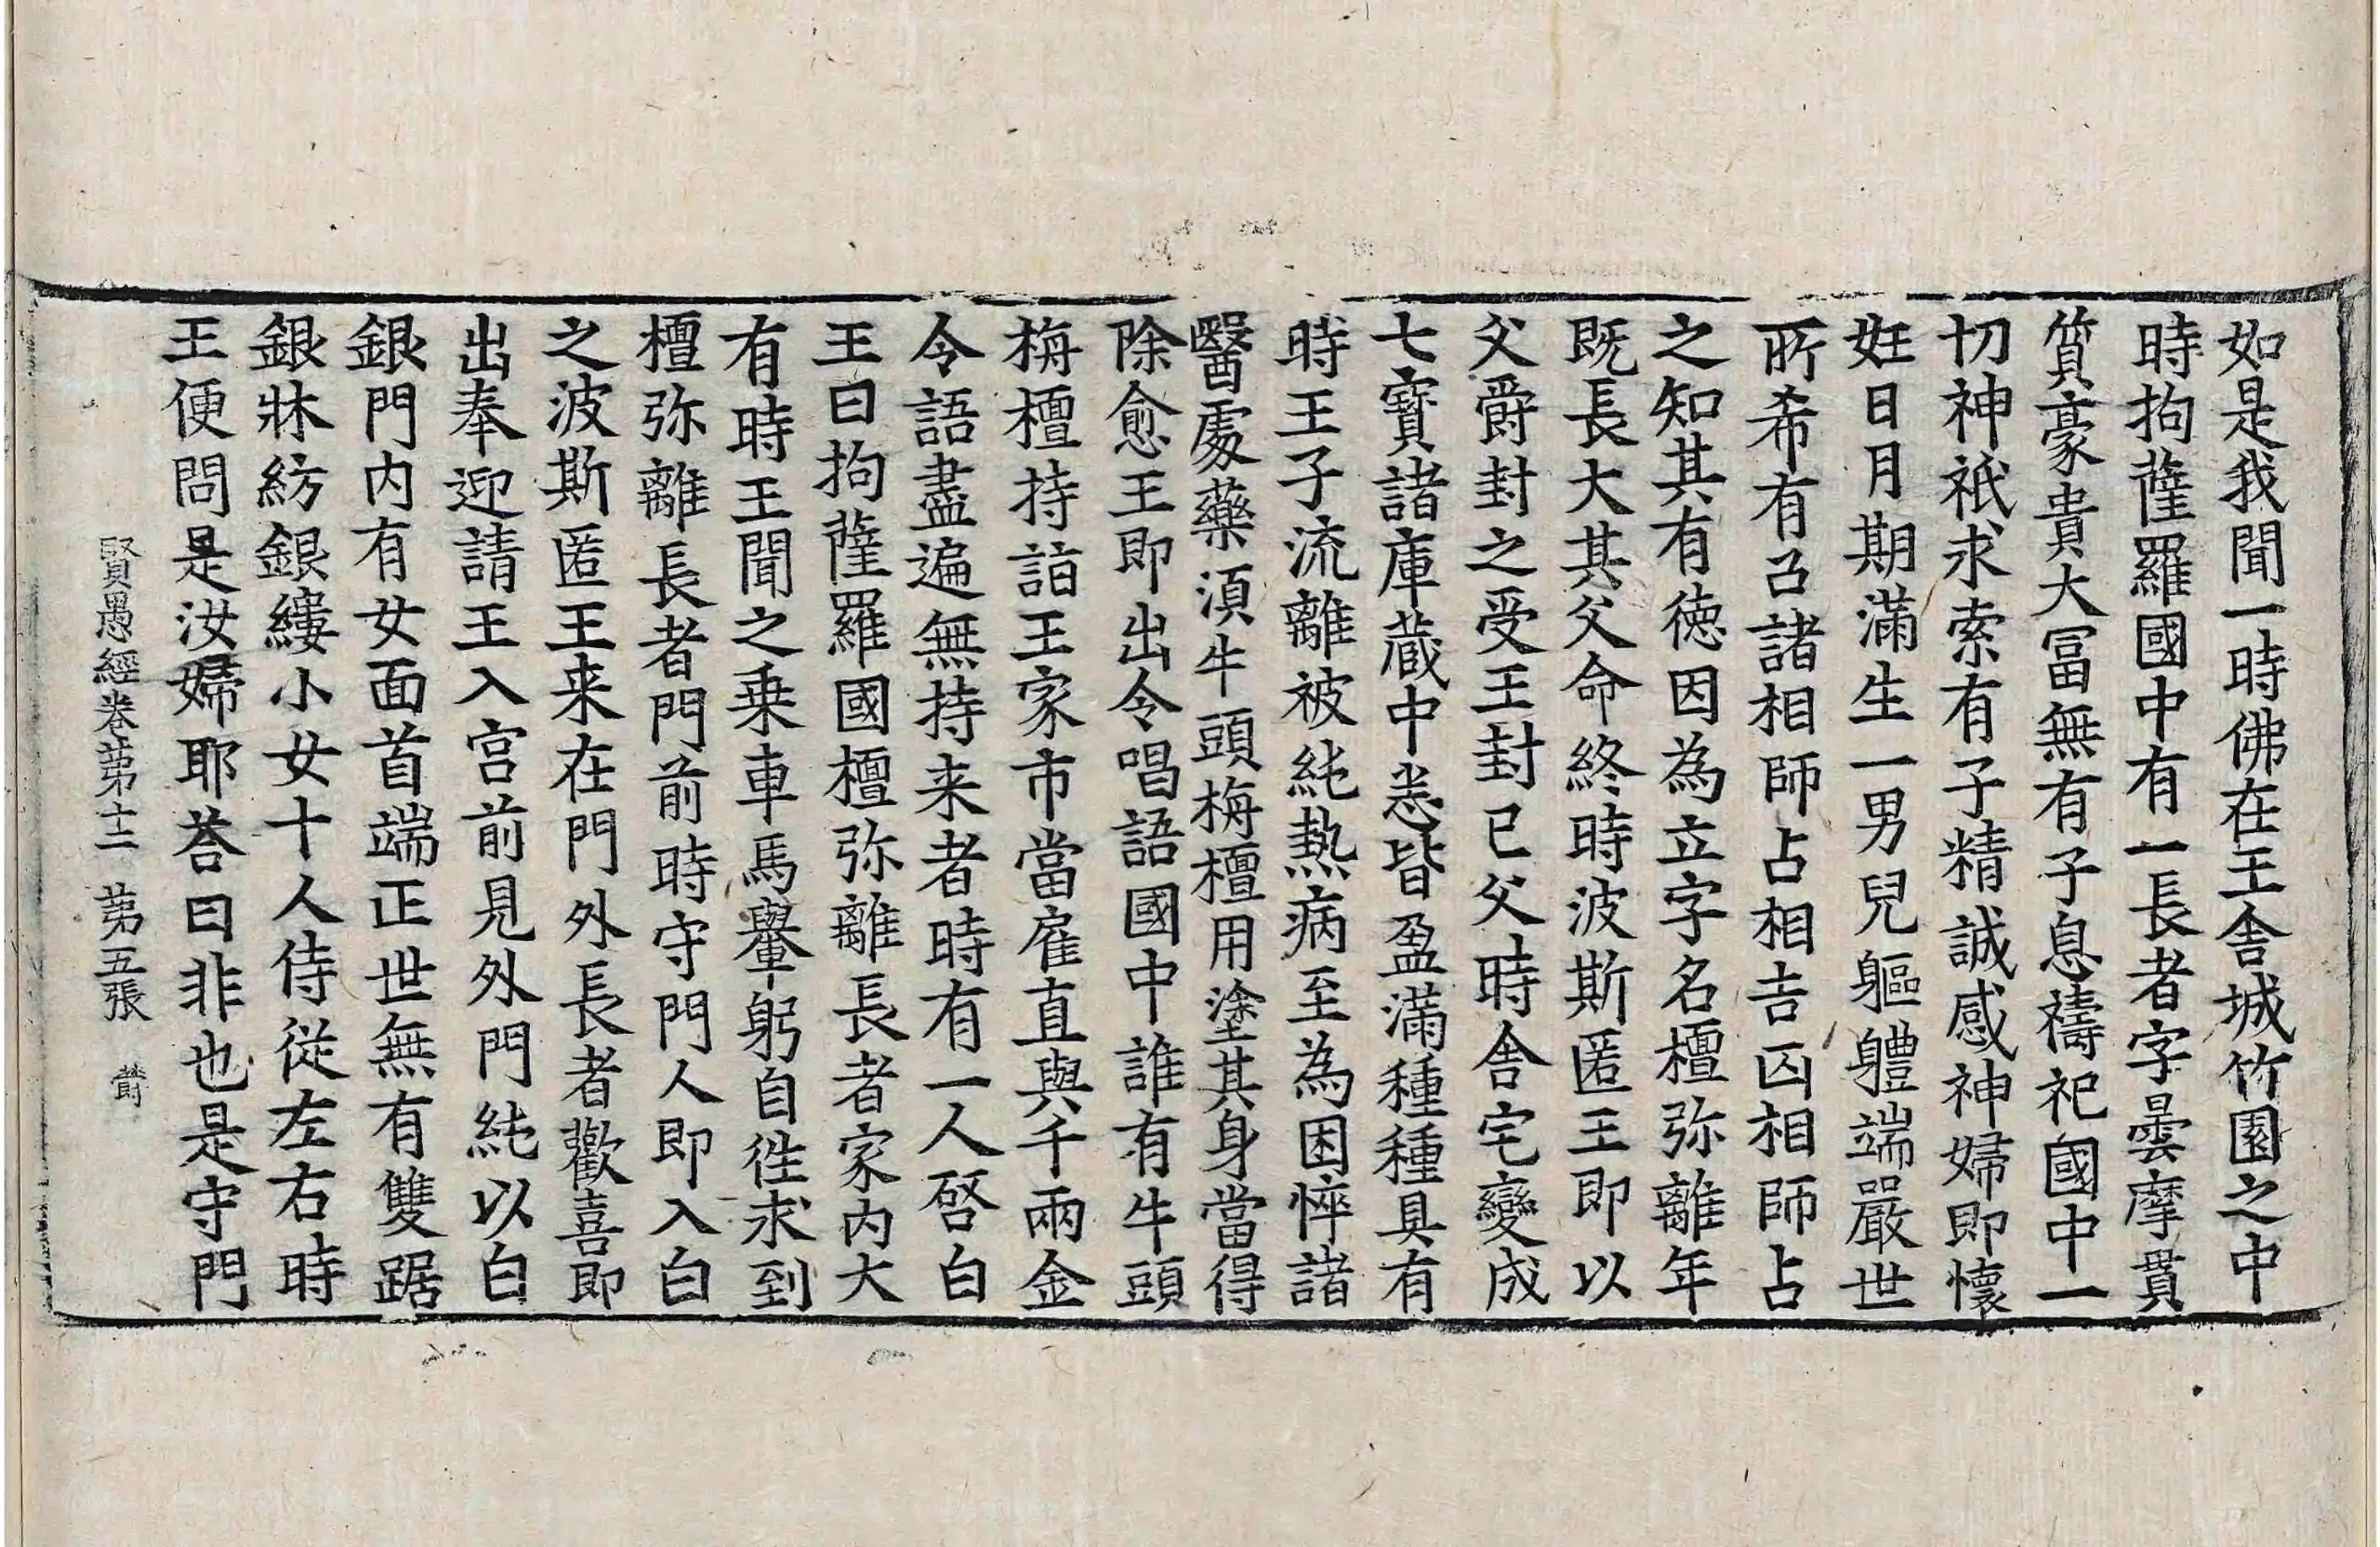 如是我聞一時佛在王舍城竹園之中
時拘薩羅國中有一長者字曇摩貫
質豪貴大冨無有子息禱祀國中一
切神祇求索有子精誠感神婦即懷
妊日月期滿生一男兒軀體端嚴世
所希有召諸相師占相吉凶相師占
之知其有德因為立字名檀弥離年
既長大其父命終時波斯匿王即以
父爵封之受王封已父時舍宅變成
七寶諸庫藏中悉皆盈滿種種具有
時王子流離被純熱病至為困悴諸
醫處藥湏牛頭栴檀用塗其身當得
除愈王即出令唱語國中誰有牛頭
栴檀持詣王家市當雇直與千兩金
令語盡遍無持来者時有一人啓白
王曰拘薩羅國檀弥離長者家内大
有時王聞之乗車馬轝躬自徃求到
檀弥離長者門前時守門人即入白
之波斯匿王来在門外長者歡喜即
出奉迎請王入宫前見外門純以白
銀門内有女面首端正世無有雙踞
銀牀紡銀縷小女十人侍從左右時
王便問是汝婦耶荅曰非也是守門
賢愚經卷苐十二 苐五張